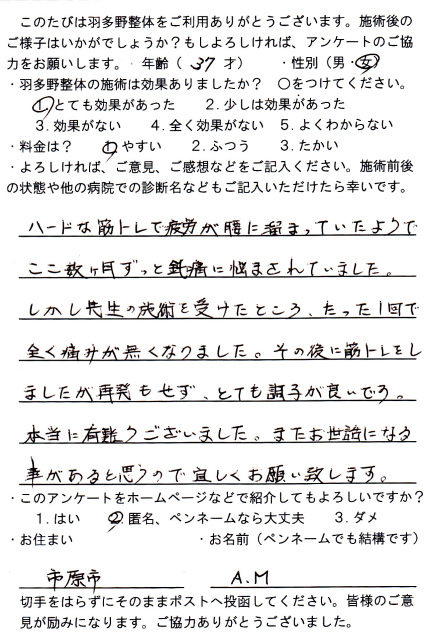 このたびは羽多野整体をご利用ありがとうございます。施術後の
ご様子はいかがでしょうか？もしよろしければ、アンケートのご協
力をお願いします。 年齢（ 37 才） ・性別（男・女）
・羽多野整体の施術は効果ありましたか？ ○をつけてください。
1.とても効果があった 2.少しは効果があった
3.効果がない 4.全く効果がない 5.よくわからない
・料金は？ 1.やすい 2.ふつう 3.たかい
・よろしければ、ご意見、ご感想などをご記入ください。施術前後
の状態や他の病院での診断名などもご記入いただけたら幸いです。
ハードな筋トレで疲労が腰に溜まっていたようで
ここ数ヶ月ずっと鈍痛に悩まされていました。
しかし先生の施術を受けたところ、たった1回で
全く痛みが無くなりました。その後に筋トレをし
ましたが再発もせず、とても調子が良いです。
本当に有難うございました。またお世話になる
事があると思うので宜しくお願い致します。
・このアンケートをホームページなどで紹介してもよろしいですか？
1.はい 2.匿名、ペンネームなら大丈夫 3.ダメ
・お住まい ・お名前（ペンネームでも結構です）
市原市 A.M
切手をはらずにそのままポストへ投函してください。皆様のご意
見が励みになります。ご協力ありがとうございました。